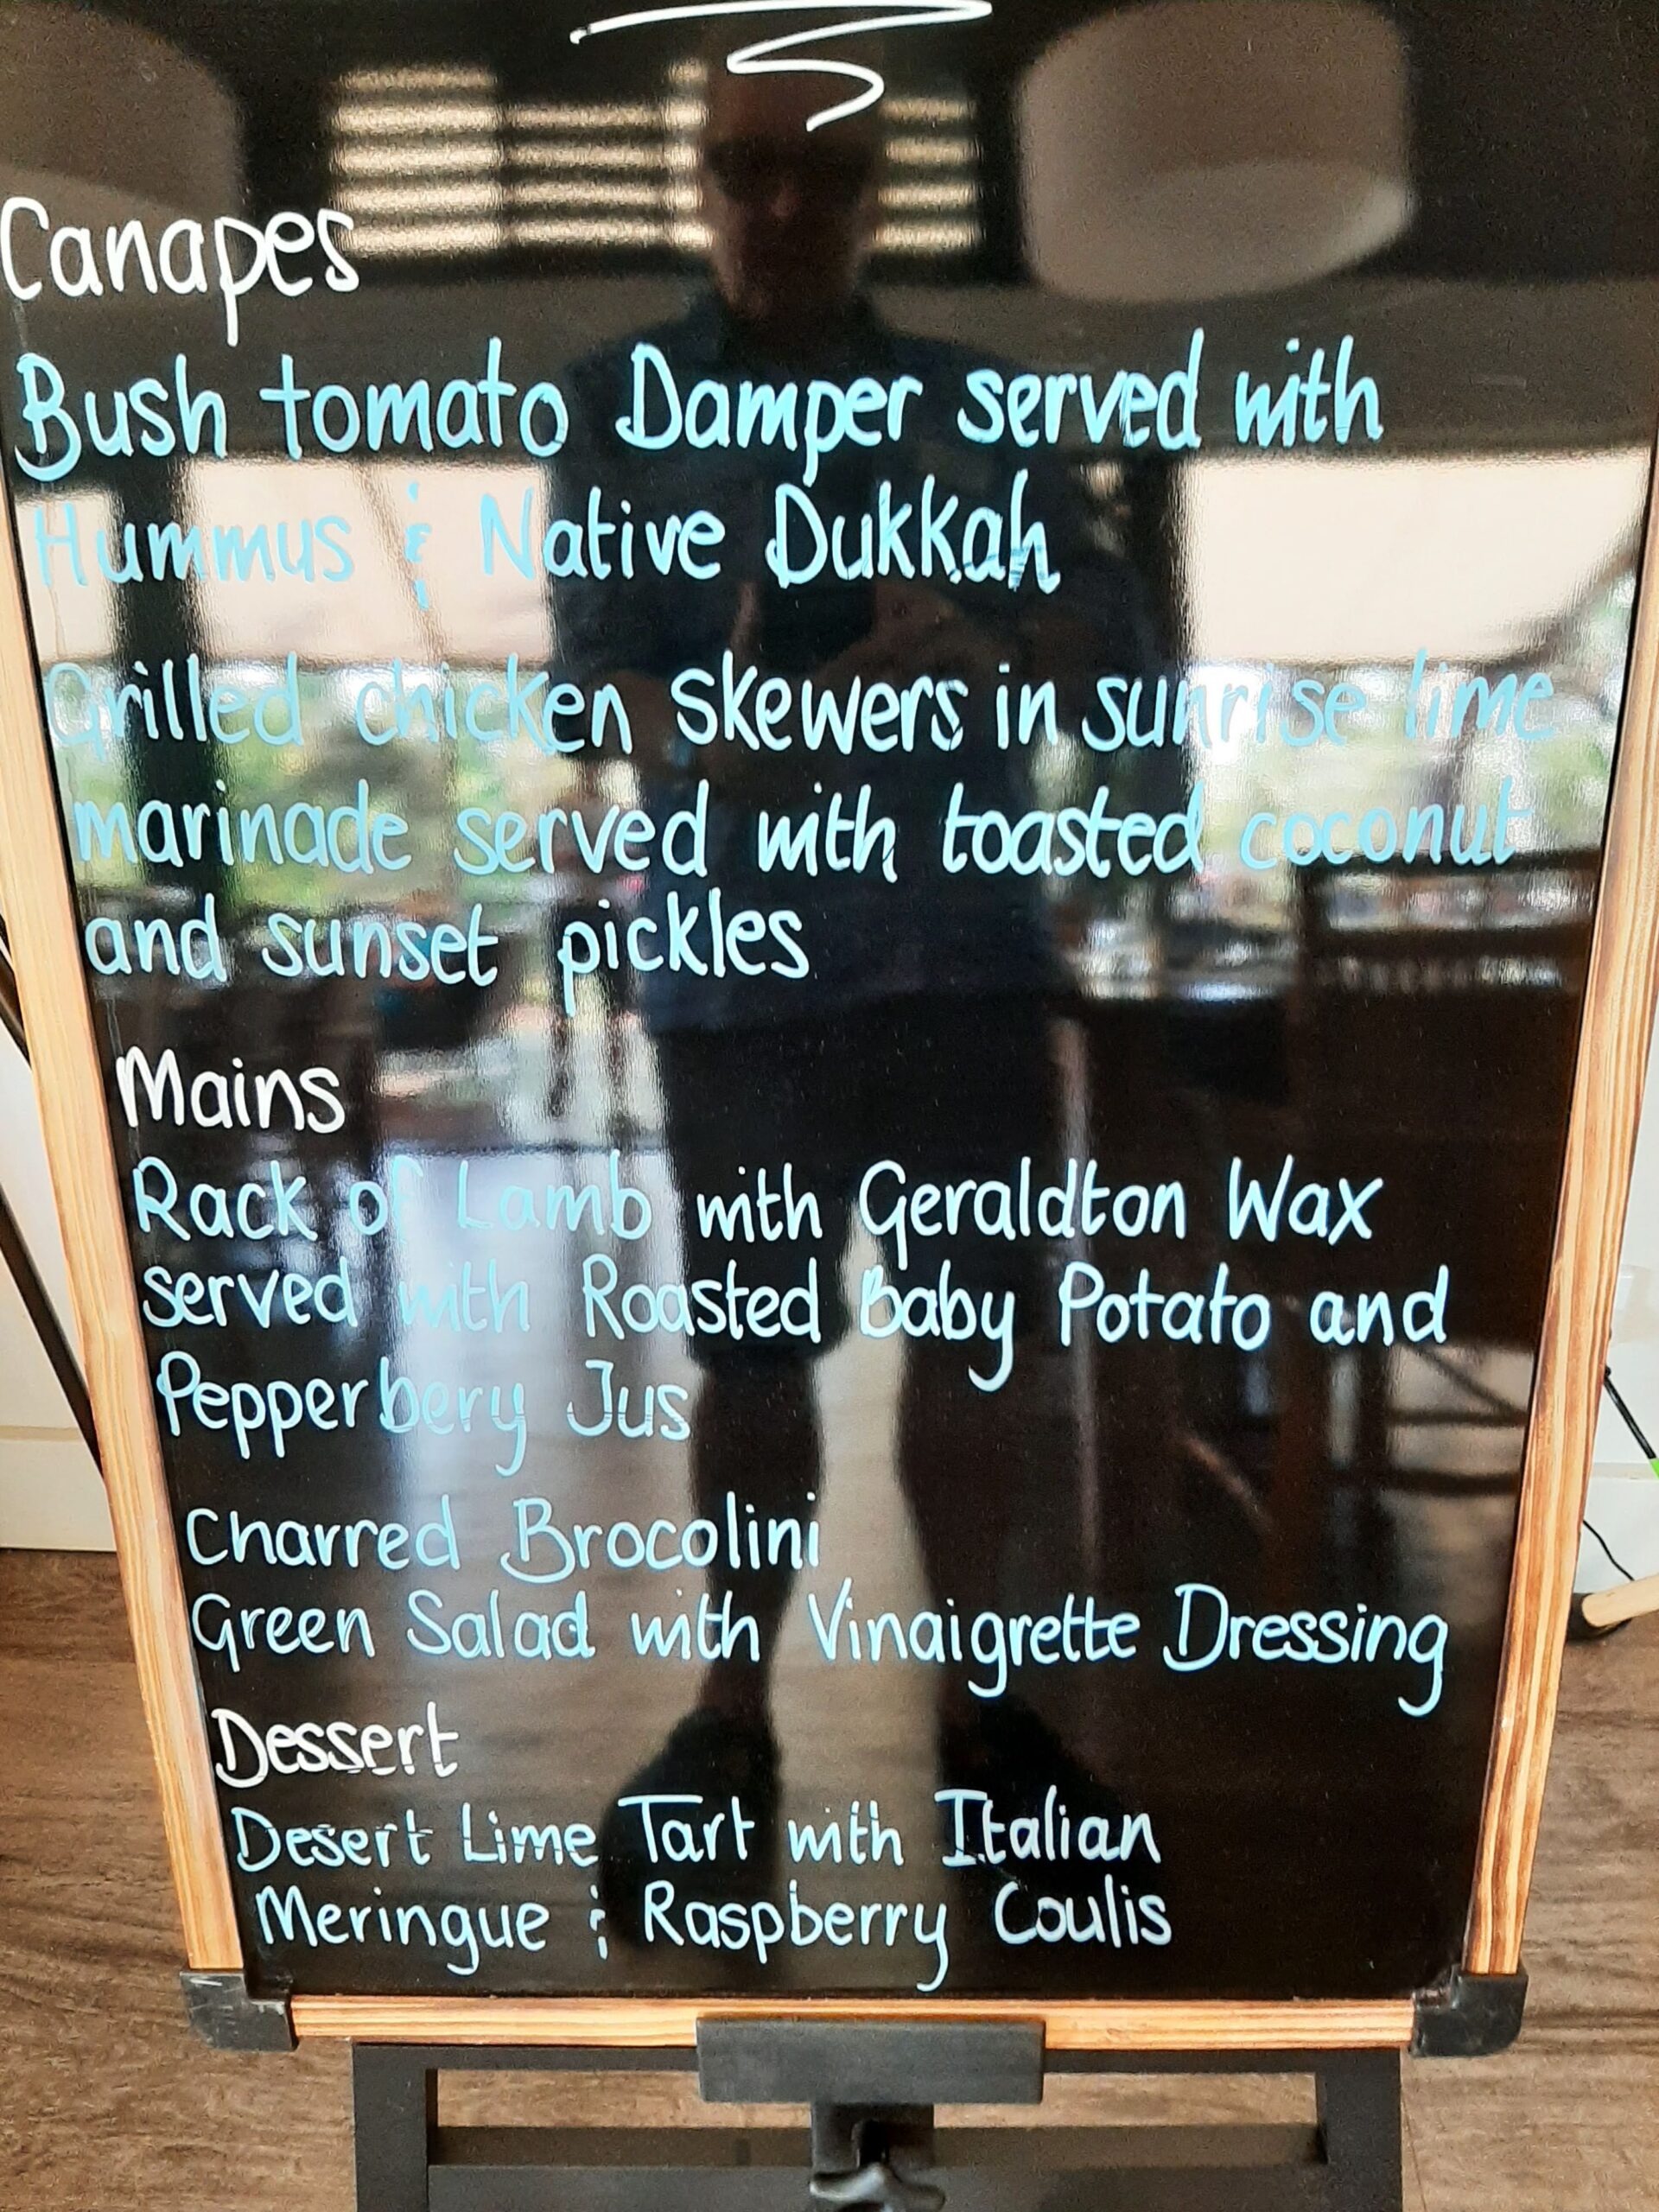 Canapes
Bush tomato Damper served with
Hummus & Native Dukkah
Grilled chicken skewers in sunrise lime
marinade served with toasted coconut
and sunset pickles
Mains
Rack of Lamb with Geraldton Wax
served with Roasted Baby Potato and
Pepperbery Jus
Charred Brocolini
Green Salad with Vinaigrette Dressing
Dessert
Desert Lime Tart with Italian
Meringue & Raspberry Coulis